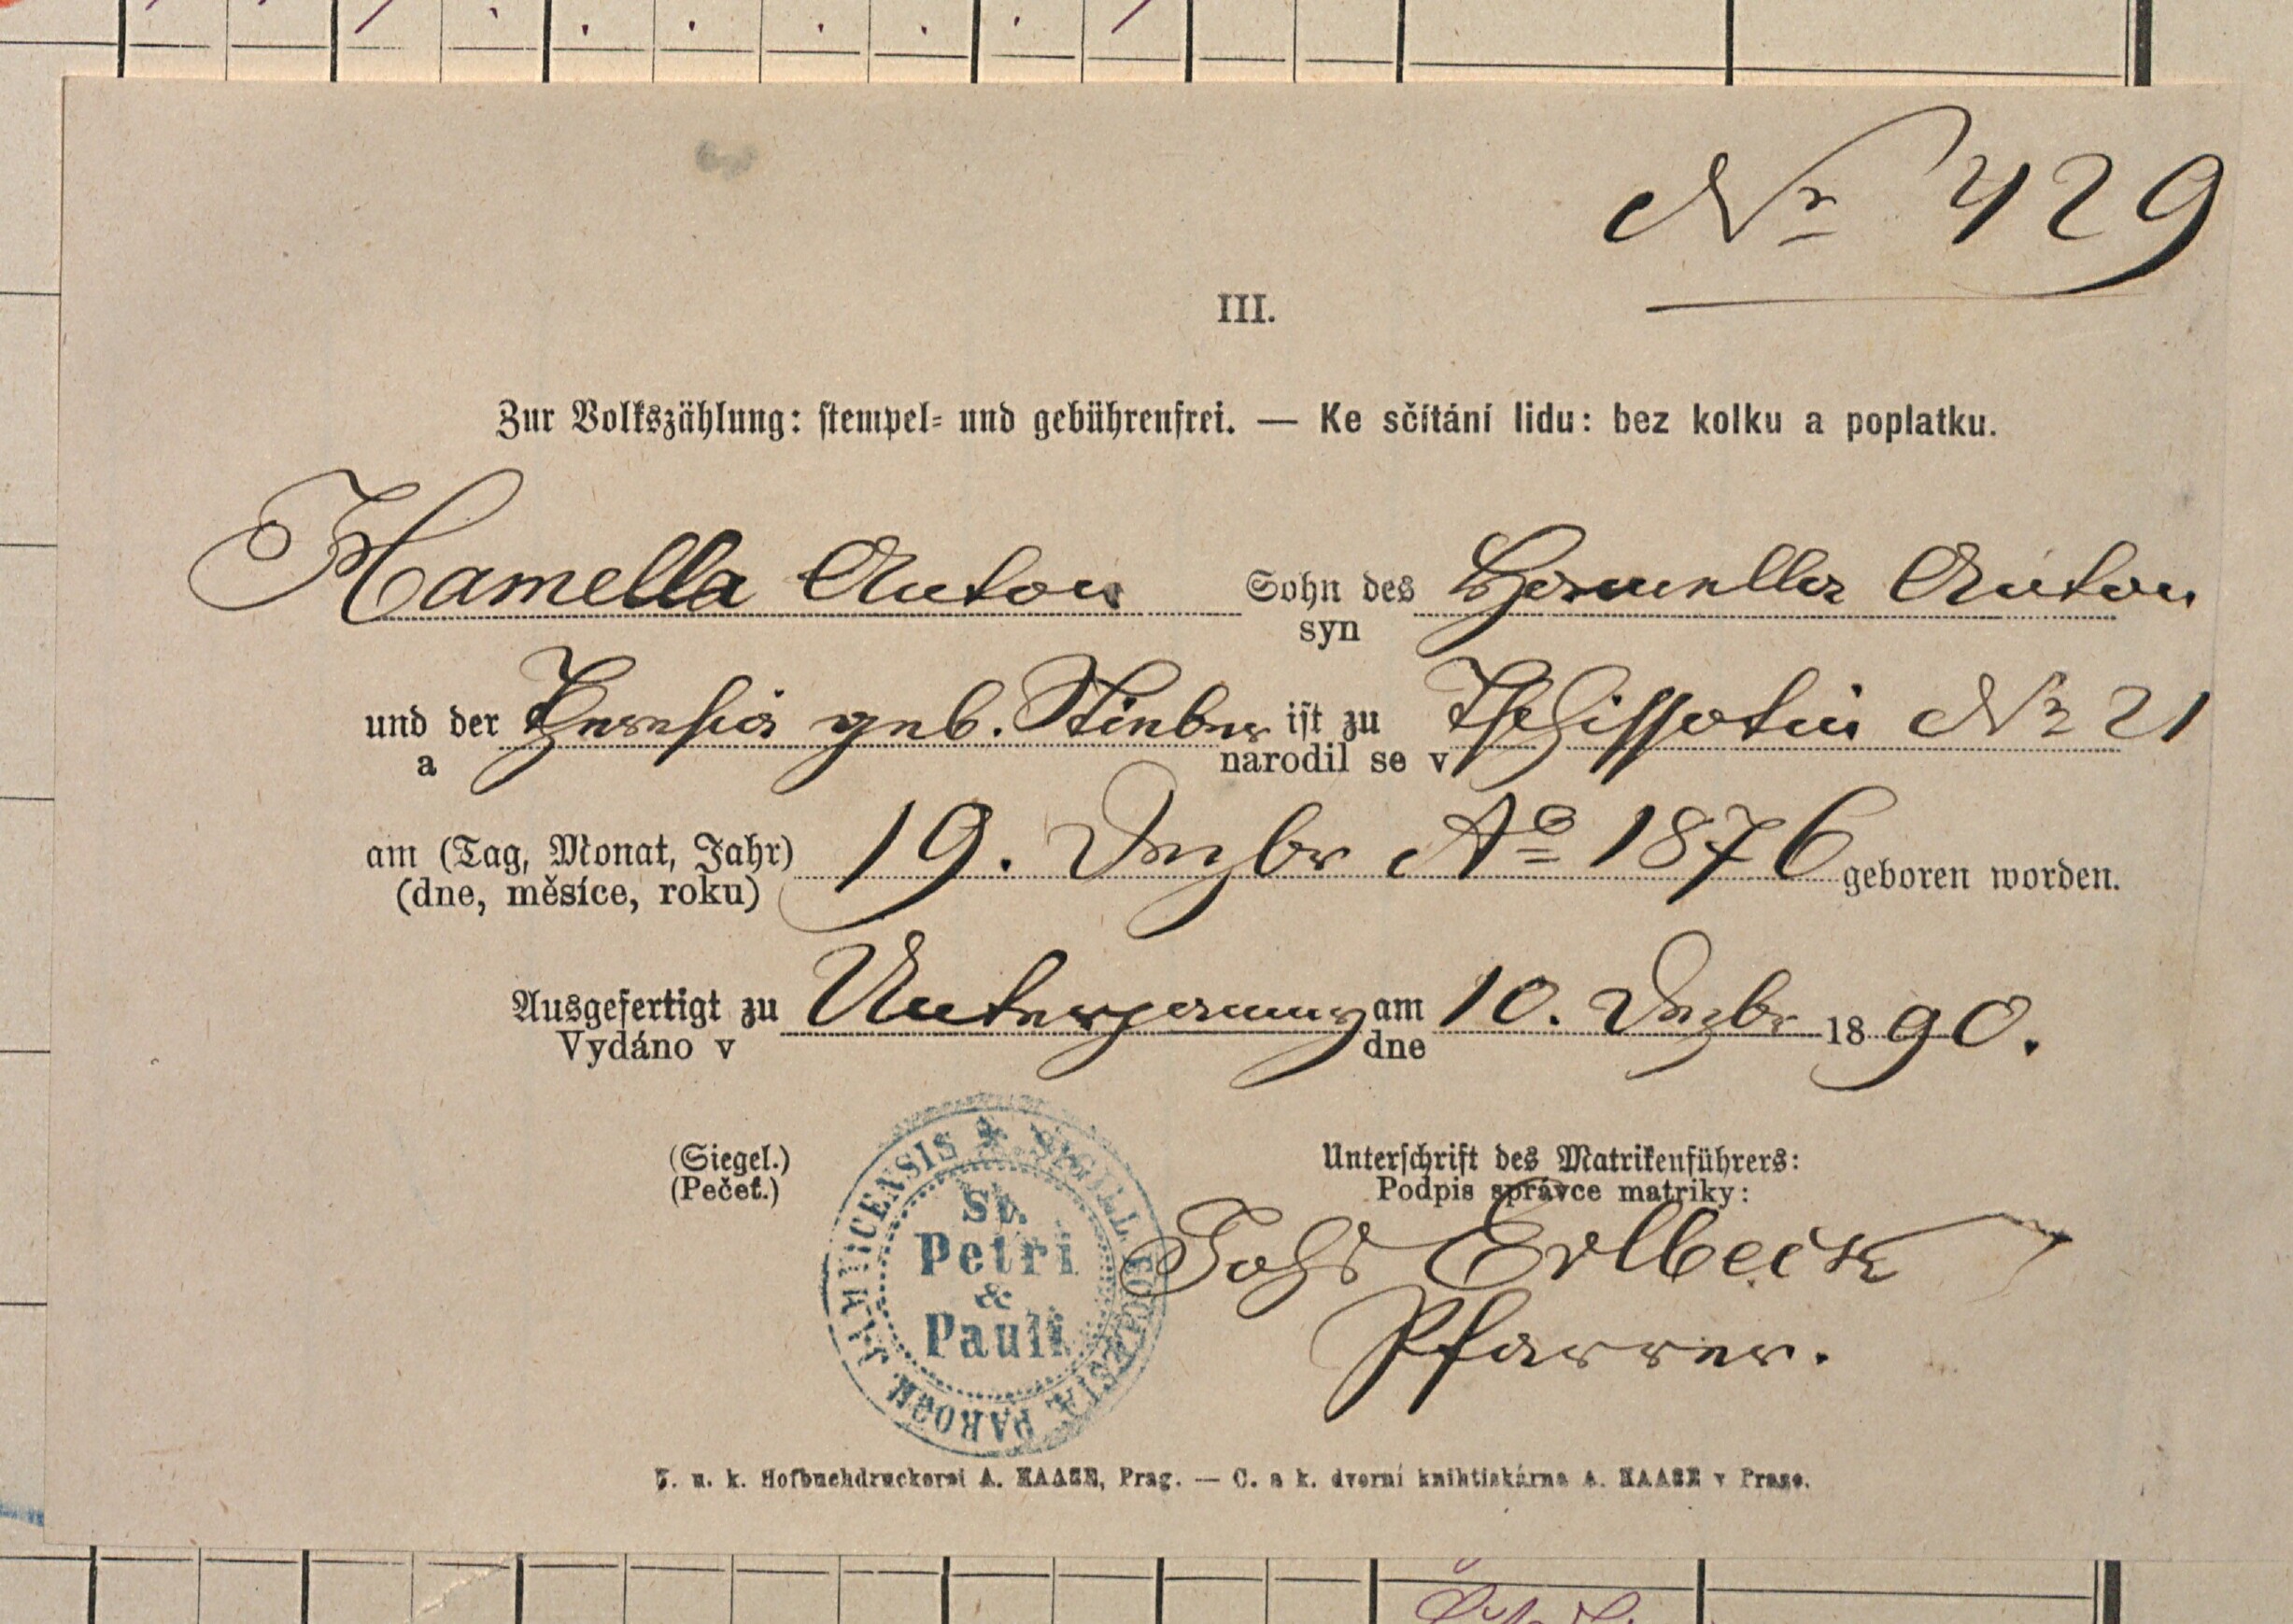 Nr 429
III.
Zur Volkszählung: stempel- und gebührenfrei. — Ke sčítání lidu: bez kolku a poplatku.
Hamella Anton Sohn des Hamella Anton
syn
und der Theresia geb. Stinber ist zu Tschissotin Nr 21
a narodil se v
am (Tag, Monat, Jahr) 19. Dezbr Ao 1876 geboren worden.
(dne, měsíce, roku)
Ausgefertigt zu Unterjamny am 10. Dezbr 1890.
Vydáno v dne
(Siegel.) Unterschrift des Matrikenführers:
(Pečeť.) Podpis správce matriky:
St. Petri & Pauli
Johs Erlbeck
Pfarrer.
K. u. k. Hofbuchdruckerei A. HAASE, Prag. — C. a k. dvorní knihtiskárna A. HAASE v Praze.